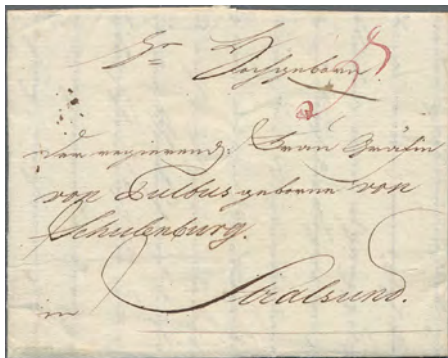 Hochgeborn
der regierend: Frau Gräfin
von Putbus geborne von
Schulenburg.
in Stralsund.